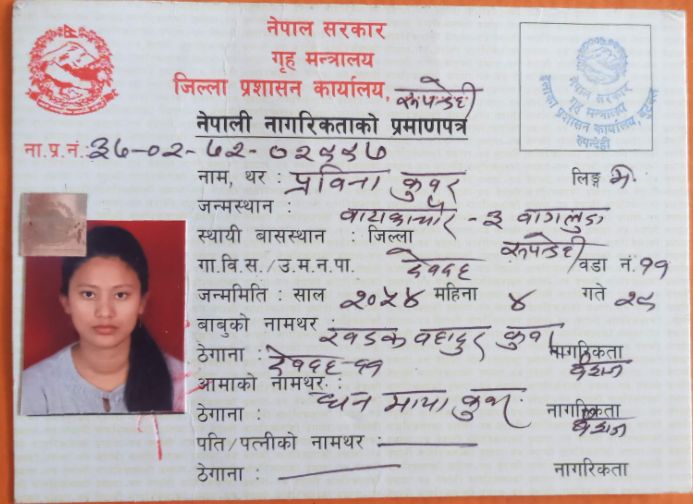 नेपाल सरकार
गृह मन्त्रालय
जिल्ला प्रशासन कार्यालय, रूपन्देही
नेपाल सरकार
गृह मन्त्रालय
इलाका प्रशासन कार्यालय, बुटवल
रुपन्देही
नेपाली नागरिकताको प्रमाणपत्र
ना.प्र.नं.:
नाम, थर : प्रविना कुवर लिङ्ग म.
जन्मस्थान : - ३ वागलुङ
स्थायी बासस्थान : जिल्ला रूपन्देही
गा.वि.स./उ.म.न.पा. देवदह वडा नं. ११
जन्ममिति : साल २०५४ महिना ४ गते २९
बाबुको नामथर : खडक वहादुर कुवर
ठेगाना : देवदह-११ नागरिकता वंशज
आमाको नामथर : धन माया कुवर
ठेगाना : नागरिकता वंशज
पति/पत्नीको नामथर :
ठेगाना : नागरिकता